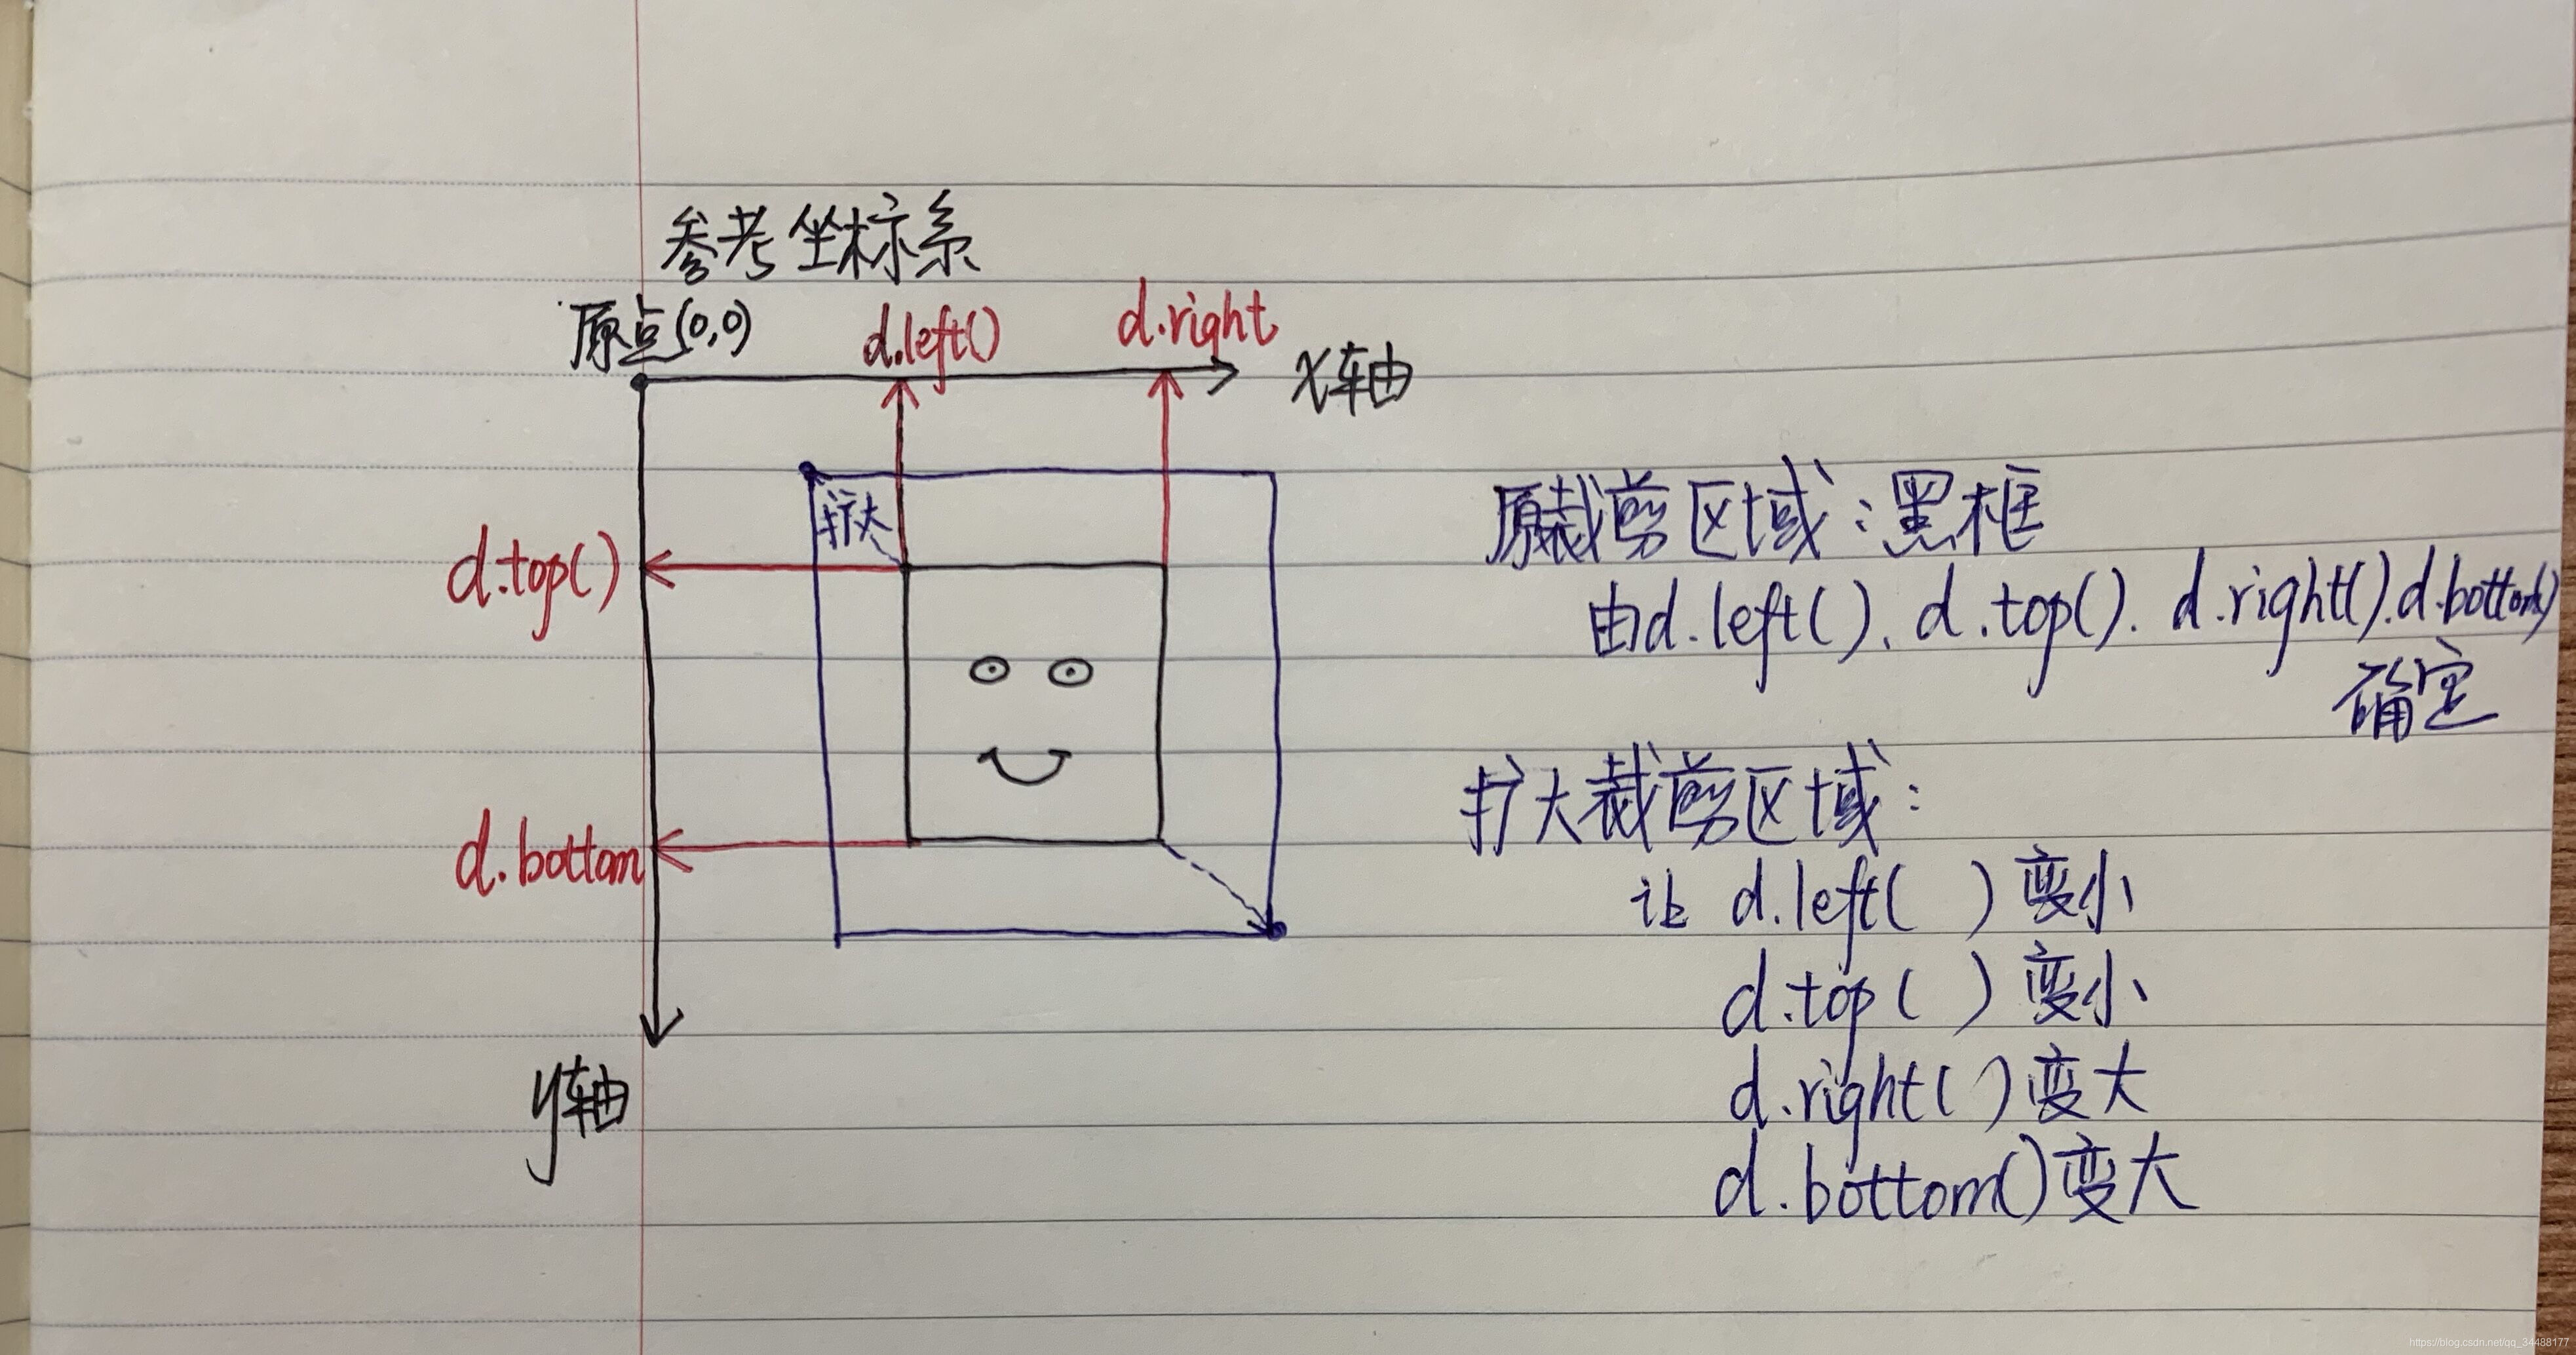 参考坐标系
原点(0,0)
d.left()
d.right
x轴
扩大
d.top()
d.bottom
y轴
原裁剪区域：黑框
由d.left()、d.top(). d.right().d.bottom()
确定
扩大裁剪区域：
让 d.left( ) 变小
d.top( ) 变小
d.right( ) 变大
d.bottom() 变大
https://blog.csdn.net/qq_34488177